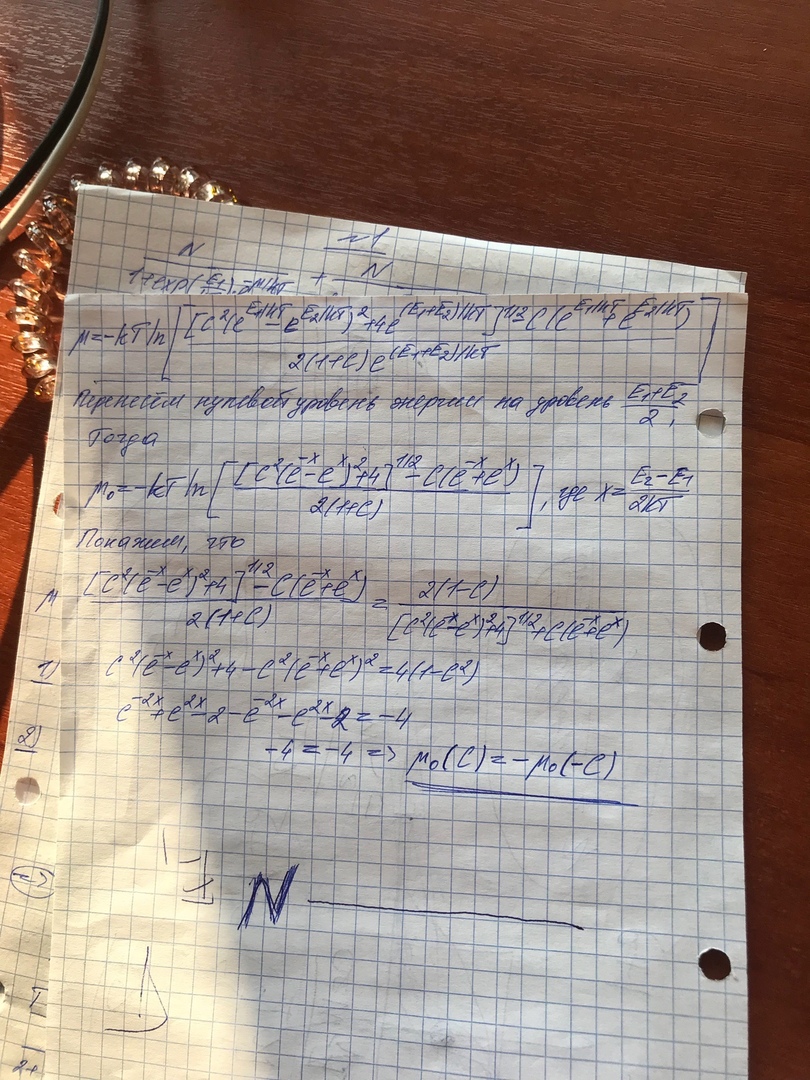 ≈1
N/(1+exp(E₁/kT)·e^(-μ/kT)) + N
μ=-kT ln[([C²(e^(E₁/kT)-e^(E₂/kT))²+4e^((E₁+E₂)/kT)]^(1/2)-C(e^(E₁/kT)+e^(E₂/kT)))/(2(1+C)e^((E₁+E₂)/kT))]
Перенесём нулевой уровень энергии на уровень (E₁+E₂)/2,
Тогда
μ₀=-kT ln[([C²(e^(-x)-e^x)²+4]^(1/2)-C(e^(-x)+e^x))/(2(1+C))], где x=(E₂-E₁)/(2kT)
Покажем, что
([C²(e^(-x)-e^x)²+4]^(1/2)-C(e^(-x)+e^x))/(2(1+C)) = 2(1-C)/([C²(e^(-x)-e^x)²+4]^(1/2)+C(e^(-x)+e^x))
1) C²(e^(-x)-e^x)²+4-C²(e^(-x)+e^x)²=4(1-C²)
e^(-2x)+e^(2x)-2-e^(-2x)-e^(2x)-2=-4
2)
-4=-4 => μ₀(C)=-μ₀(-C)
N